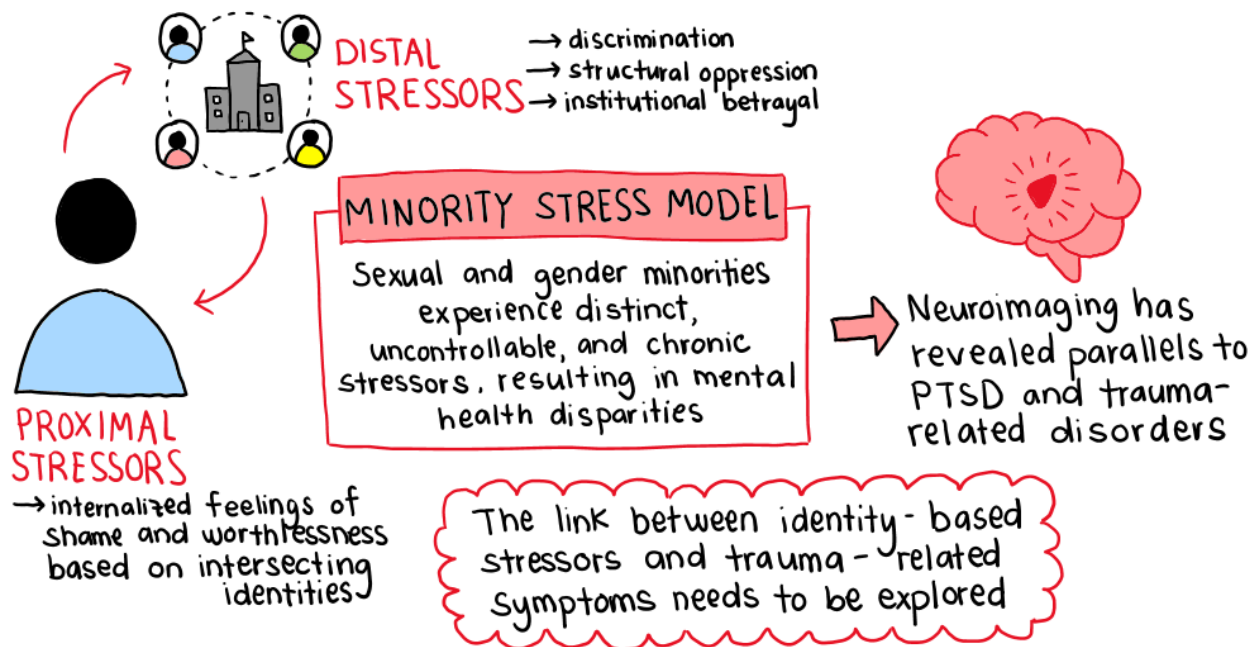 DISTAL
STRESSORS
→ discrimination
→ structural oppression
→ institutional betrayal
MINORITY STRESS MODEL
Sexual and gender minorities
experience distinct,
uncontrollable, and chronic
stressors, resulting in mental
health disparities
Neuroimaging has
revealed parallels to
PTSD and trauma-
related disorders
PROXIMAL
STRESSORS
→ internalized feelings of
shame and worthlessness
based on intersecting
identities
The link between identity-based
stressors and trauma-related
symptoms needs to be explored